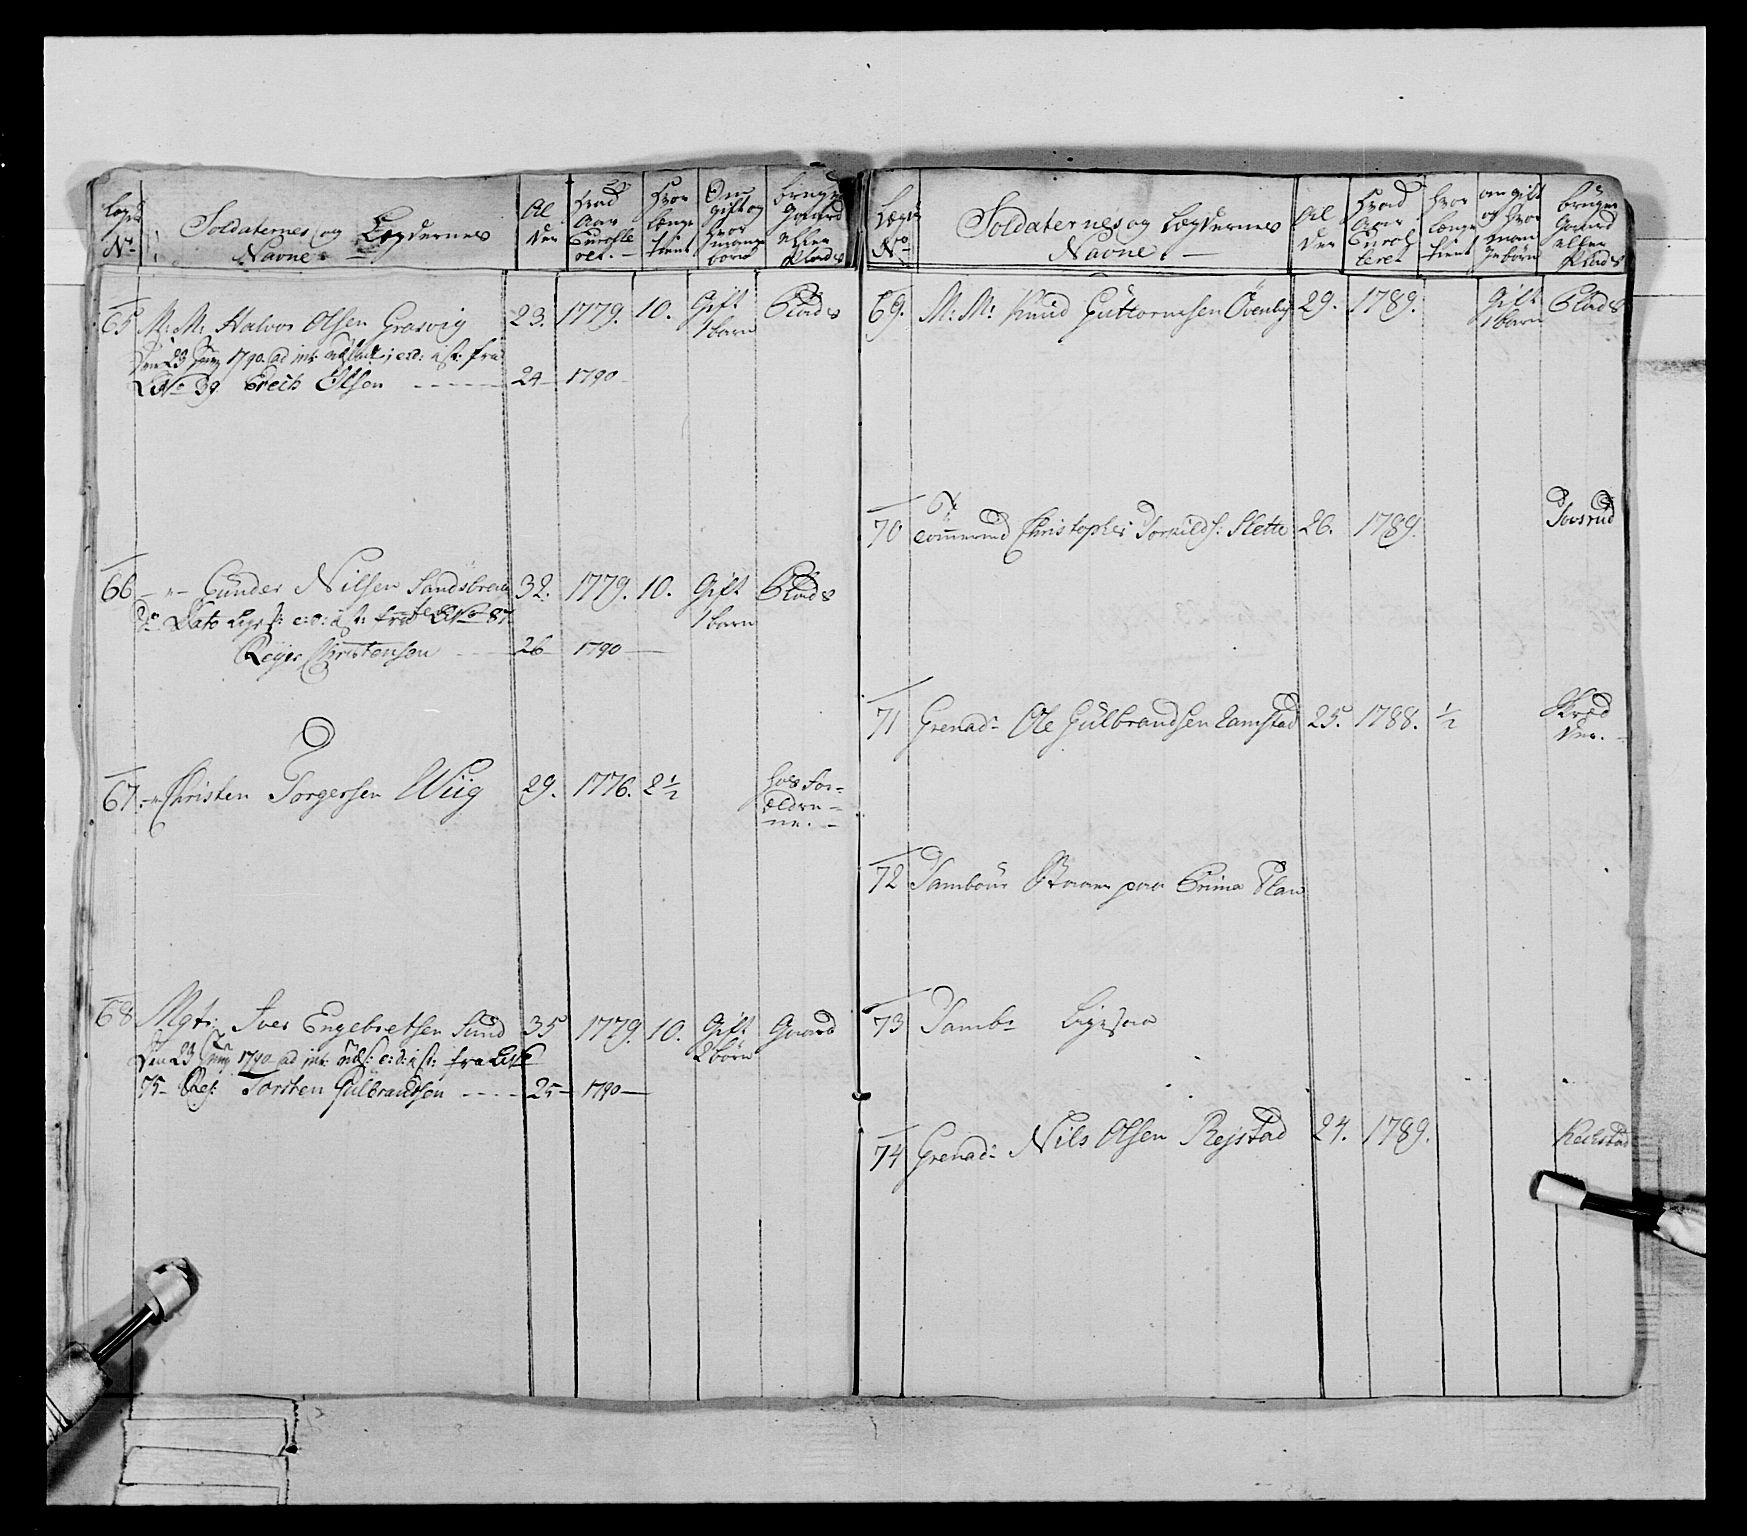 Lægds No
Soldaternes og Lægdernes Navne
Al der
Hvad Aar Enrolle ret.
Hvor længe tient
Om gift og hvor mange børn
bruger Gaard eller Plads
65 M: M: Halvor Olsen Grasvig 23. 1779. 10. Gift 1 barn Plads
Den 23 Juny 1790 ad int: udsl: i: st: fra
L No 39 Erich Olsen 24 1790
66 - " - Gunder Nilsen Sandsbraat 32. 1779. 10. Gift 1 barn Plads
Do Dato Lgs f: e: o: i st: fra L No 87
Reyer Christensen 26 1790
67. " Christen Torgersen Wiig 29. 1776. 2 1/2 hos for- ældre- ne.
68 Mgtr: Iver Engebretsen Sund 35 1779. 10. Gift 2 børn Gaard
Den 23 Juny 1790 ad int: udsl: e: d: i st: fra L No
75 Res: Torsten Gulbrandsen 25 1790
Lægds No
Soldaternes og Lægdernes Navne.
Al der
Hvad Aar Enrol leret
hvor længe tient
om gift og hvor man ge børn
bruger Gaard eller Plads
69. M: M: Knud Guttormsen Ovenby 29. 1789. Gift 1 barn Plads
70 Christopher Torkilds: Slette 26. 1789.
71 Grenad: Ole Gulbrandsen Lamstad 25. 1788. 1/2 Skred der.
72 Tambour Staaer paa Prima Plan
73 Tambr Ligesaa
74 Grenad: Nils Olsen Rejstad 24. 1789.